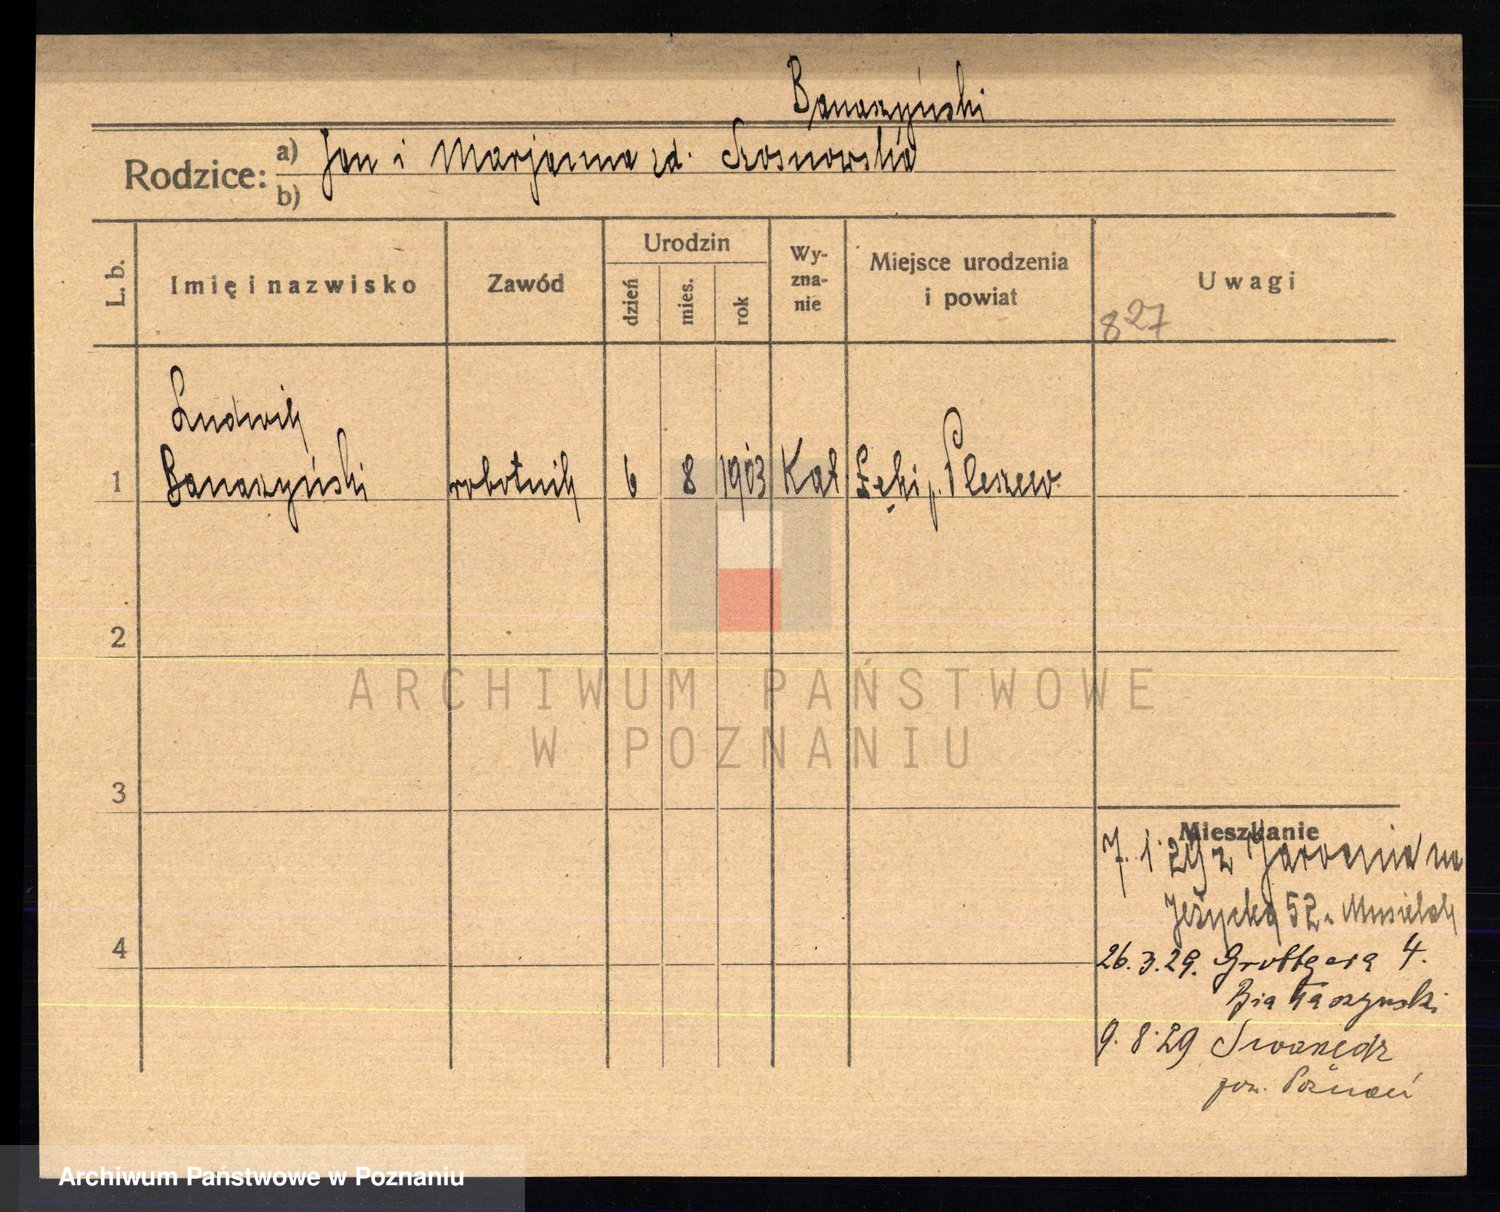 Banaszyński
Rodzice: a) Jan i Marjanna zd. Sosnowska
b)
L. b. Imię i nazwisko Zawód Urodzin dzień mies. rok Wyznanie Miejsce urodzenia i powiat Uwagi
827
Ludwik
1 Banaszyński robotnik 6 8 1903 Kat Łęki p. Pleszew
2
ARCHIWUM PAŃSTWOWE
W POZNANIU
3
Mieszkanie
7. 1. 29 z na
Jeżycka 52 Musielak
4
26. 3. 29. Grottgera 4.
9. 8. 29 Swarzędz
Poznań
Archiwum Państwowe w Poznaniu